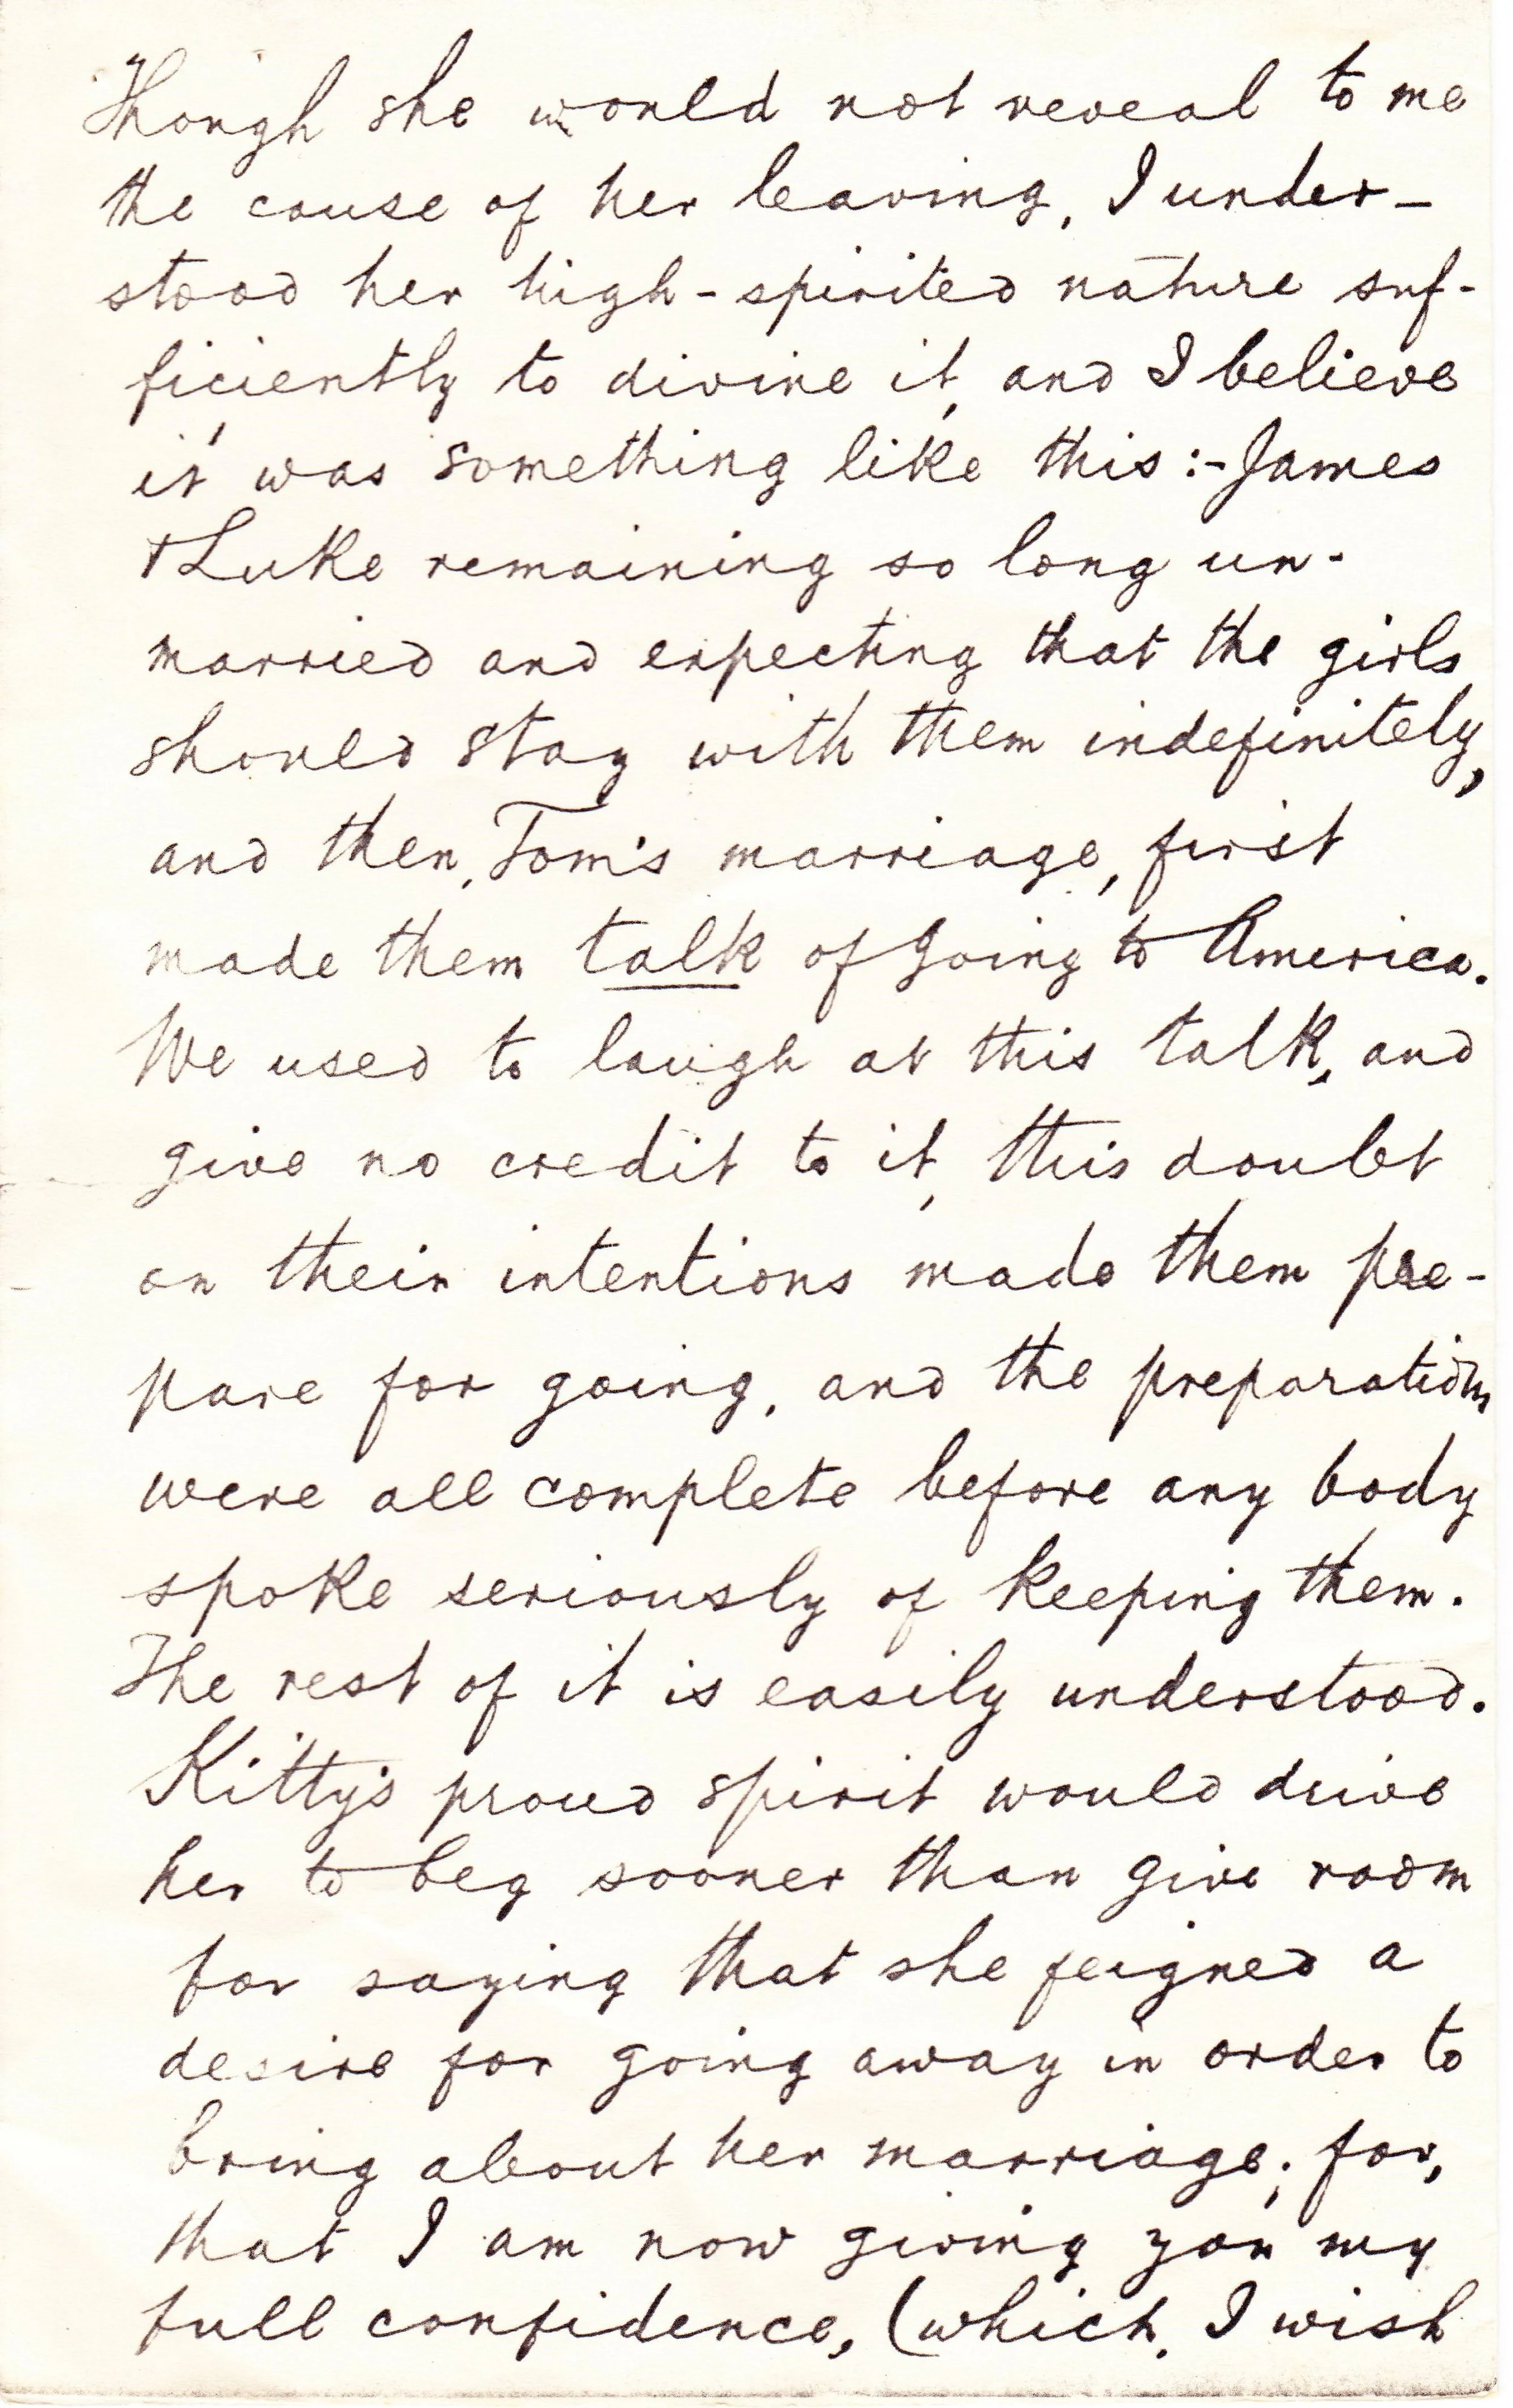 Though she would not reveal to me
the cause of her leaving, I under-
stood her high-spirited nature suf-
ficiently to divine it, and I believe
it was something like this:- James
& Luke remaining so long un-
married and expecting that the girls
should stay with them indefinitely,
and then, Tom's marriage, first
made them talk of going to America.
We used to laugh at this talk, and
give no credit to it, this doubt
on their intentions made them pre-
pare for going, and the preparations
were all complete before any body
spoke seriously of keeping them.
The rest of it is easily understood.
Kitty's proud spirit would drive
her to beg sooner than give room
for saying that she feigned a
desire for going away in order to
bring about her marriage; for,
that I am now giving you my
full confidence, (which, I wish